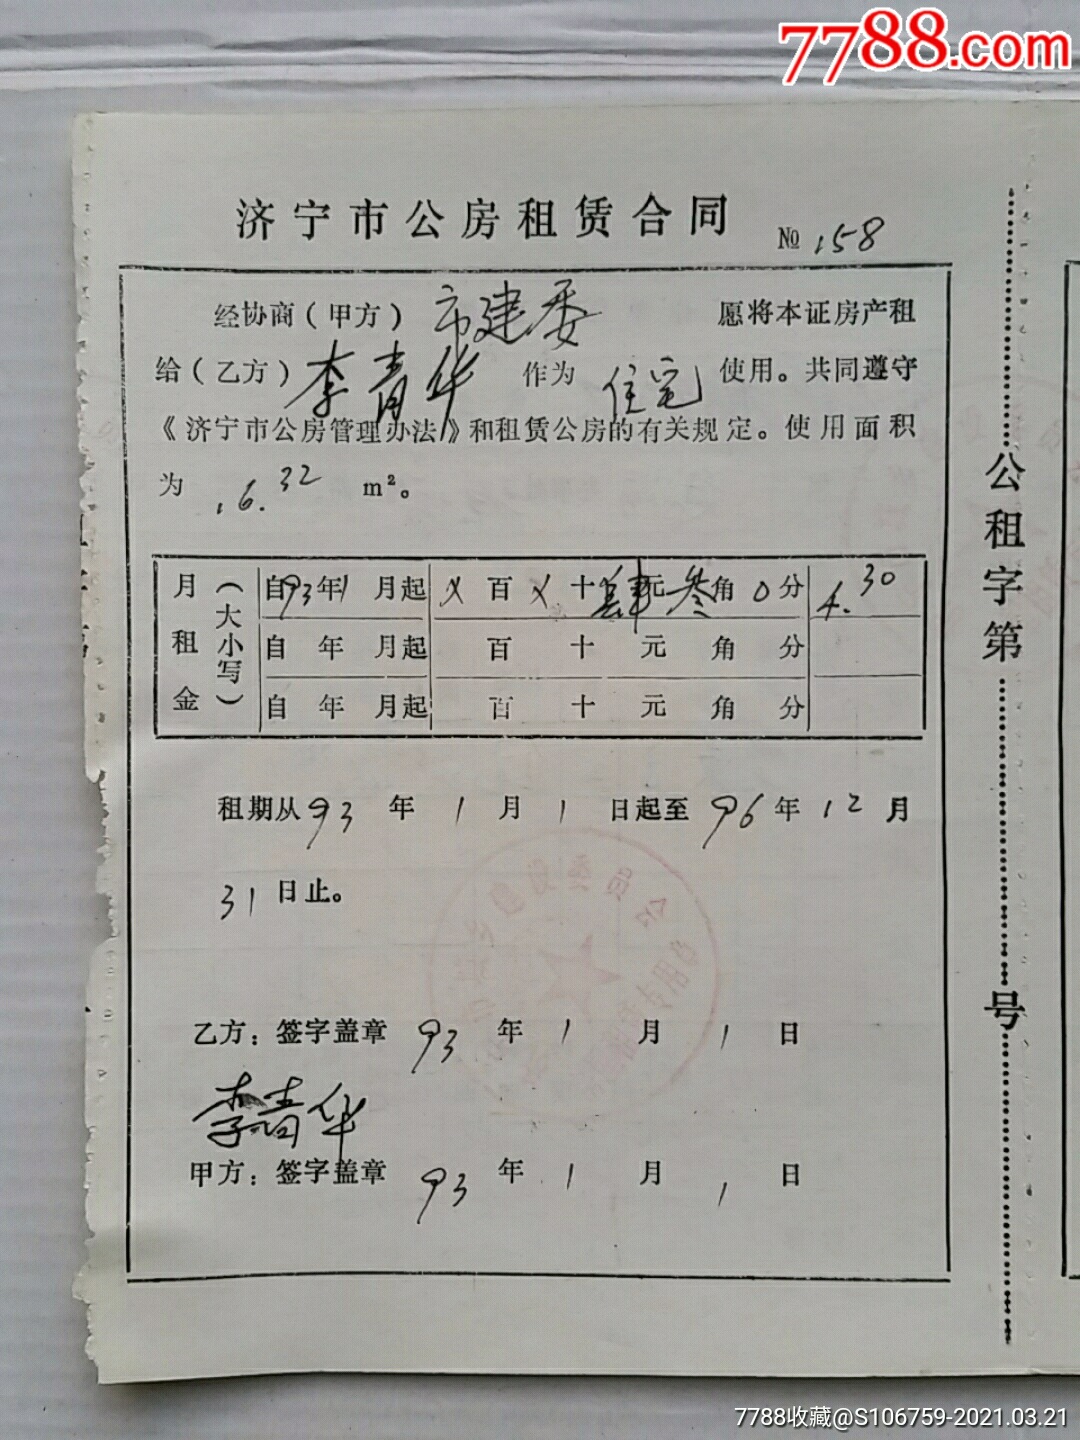 7788.com
济宁市公房租赁合同 № 158
经协商(甲方) 市建委 愿将本证房产租
给(乙方) 李青华 作为 住宅 使用。共同遵守
《济宁市公房管理办法》和租赁公房的有关规定。使用面积
为 16.32 m²。
月租金 (大小写)
自93年1月起 ×百×十肆元叁角0分 4.30
自 年 月起 百 十 元 角 分
自 年 月起 百 十 元 角 分
租期从 93 年 1 月 1 日起至 96 年 12 月
31 日止。
乙方：签字盖章 93 年 1 月 1 日
李青华
甲方：签字盖章 93 年 1 月 1 日
公租字第 号
7788收藏@S106759-2021.03.21